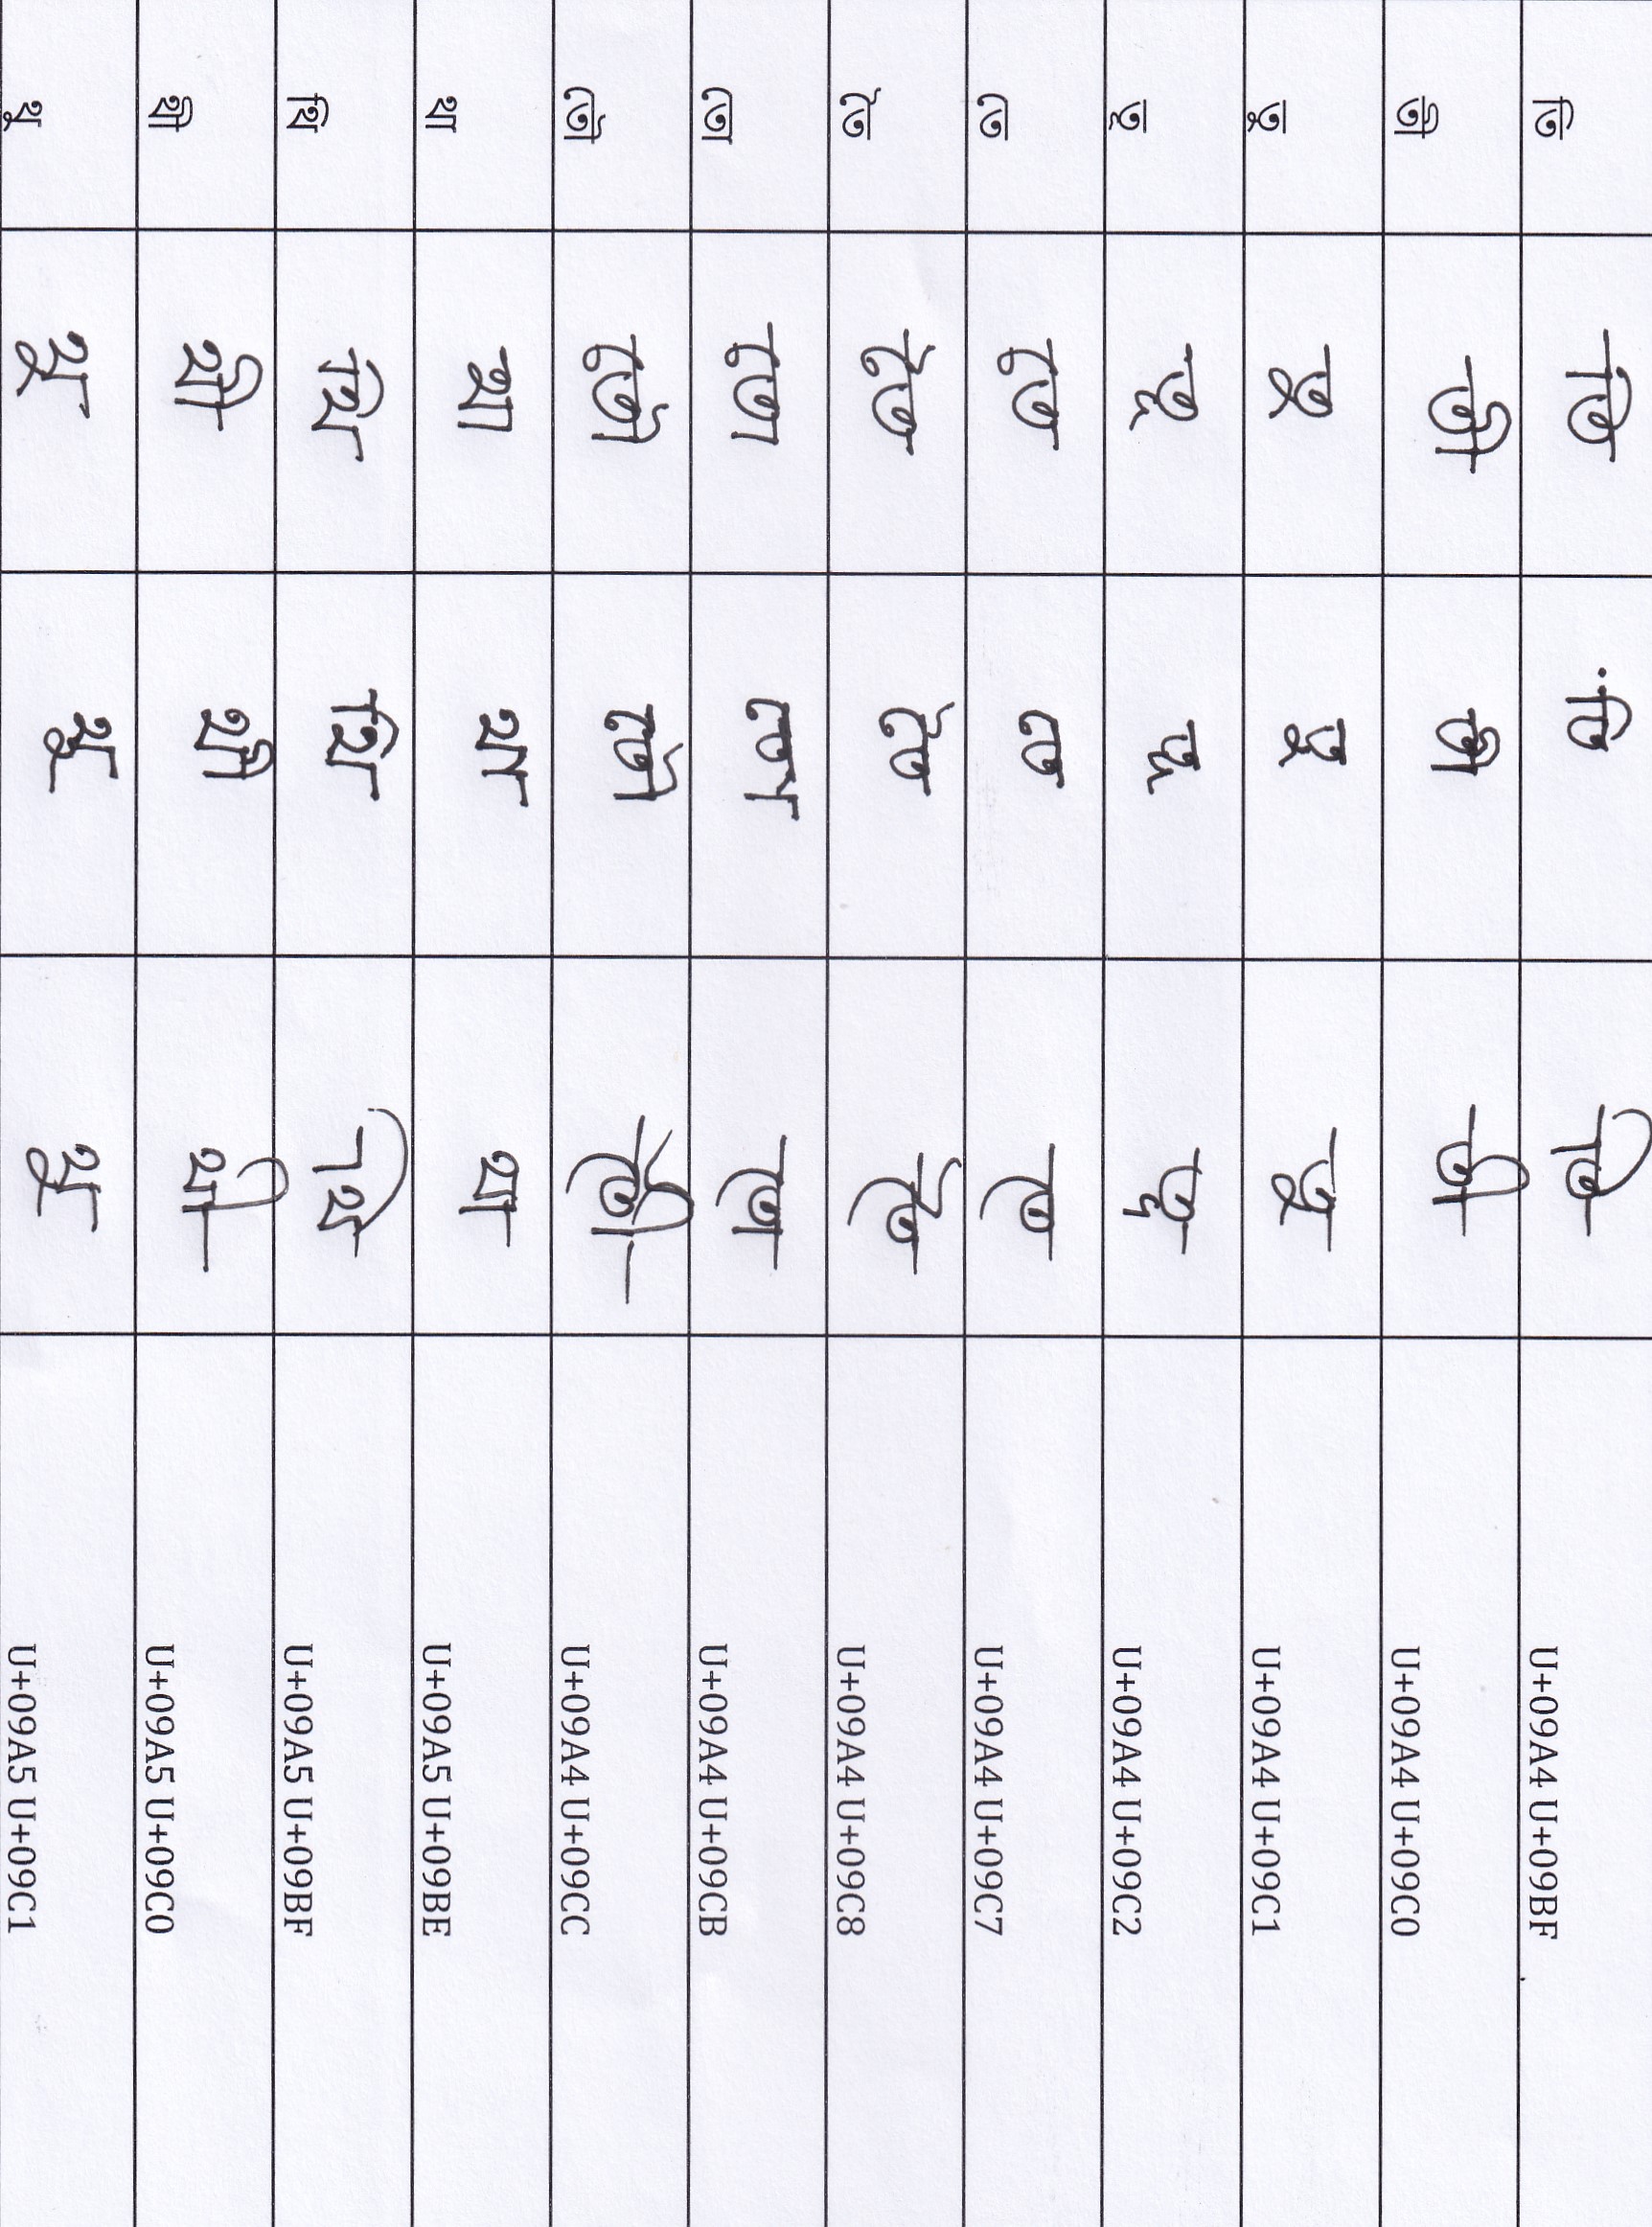 তি তি তি তি U+09A4 U+09BF
তী তী তী তী U+09A4 U+09C0
তু তু তু তু U+09A4 U+09C1
তূ তূ তূ তূ U+09A4 U+09C2
তে তে তে তে U+09A4 U+09C7
তৈ তৈ তৈ তৈ U+09A4 U+09C8
তো তো তো তো U+09A4 U+09CB
তৌ তৌ তৌ তৌ U+09A4 U+09CC
থা থা থা থা U+09A5 U+09BE
থি থি থি থি U+09A5 U+09BF
থী থী থী থী U+09A5 U+09C0
থু থু থু থু U+09A5 U+09C1